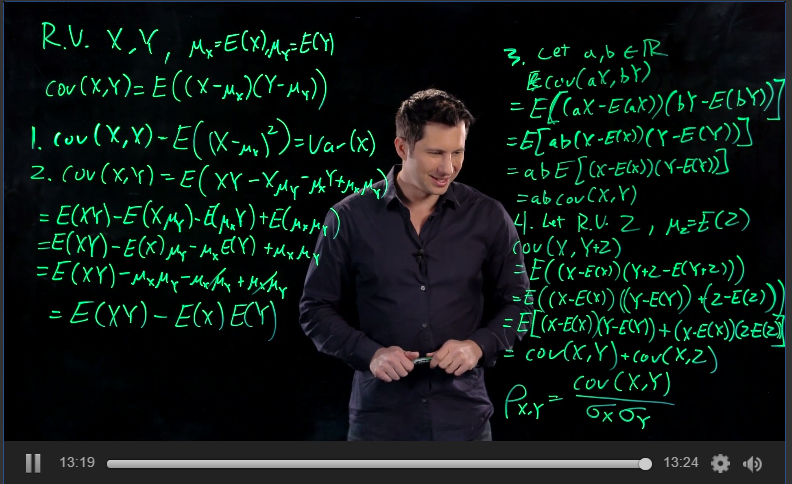 R.V. X,Y, μx=E(X), μy=E(Y)
cov(X,Y)=E((X-μx)(Y-μy))
1. cov(X,X)-E((X-μx)²)=Var(x)
2. cov(X,Y)=E(XY-Xμy-μxY+μxμy)
=E(XY)-E(Xμy)-E(μxY)+E(μxμy)
=E(XY)-E(x)μy-μxE(Y)+μxμy
=E(XY)-μxμy-μxμy+μxμy
=E(XY)-E(x)E(Y)
3. Let a,b ∈ ℝ
cov(aX,bY)
=E[(aX-E(aX))(bY-E(bY))]
=E[ab(X-E(x))(Y-E(Y))]
=abE[(x-E(x))(Y-E(Y))]
=abcov(X,Y)
4. Let R.V. Z, μz=E(Z)
cov(X,Y+Z)
=E((X-E(x))(Y+Z-E(Y+Z)))
=E((X-E(x))((Y-E(Y))+(Z-E(Z)))
=E[(X-E(x))(Y-E(Y))+(X-E(x))(ZE(Z))]
=cov(X,Y)+cov(X,Z)
ρX,Y=cov(X,Y)
σXσY
13:19 13:24